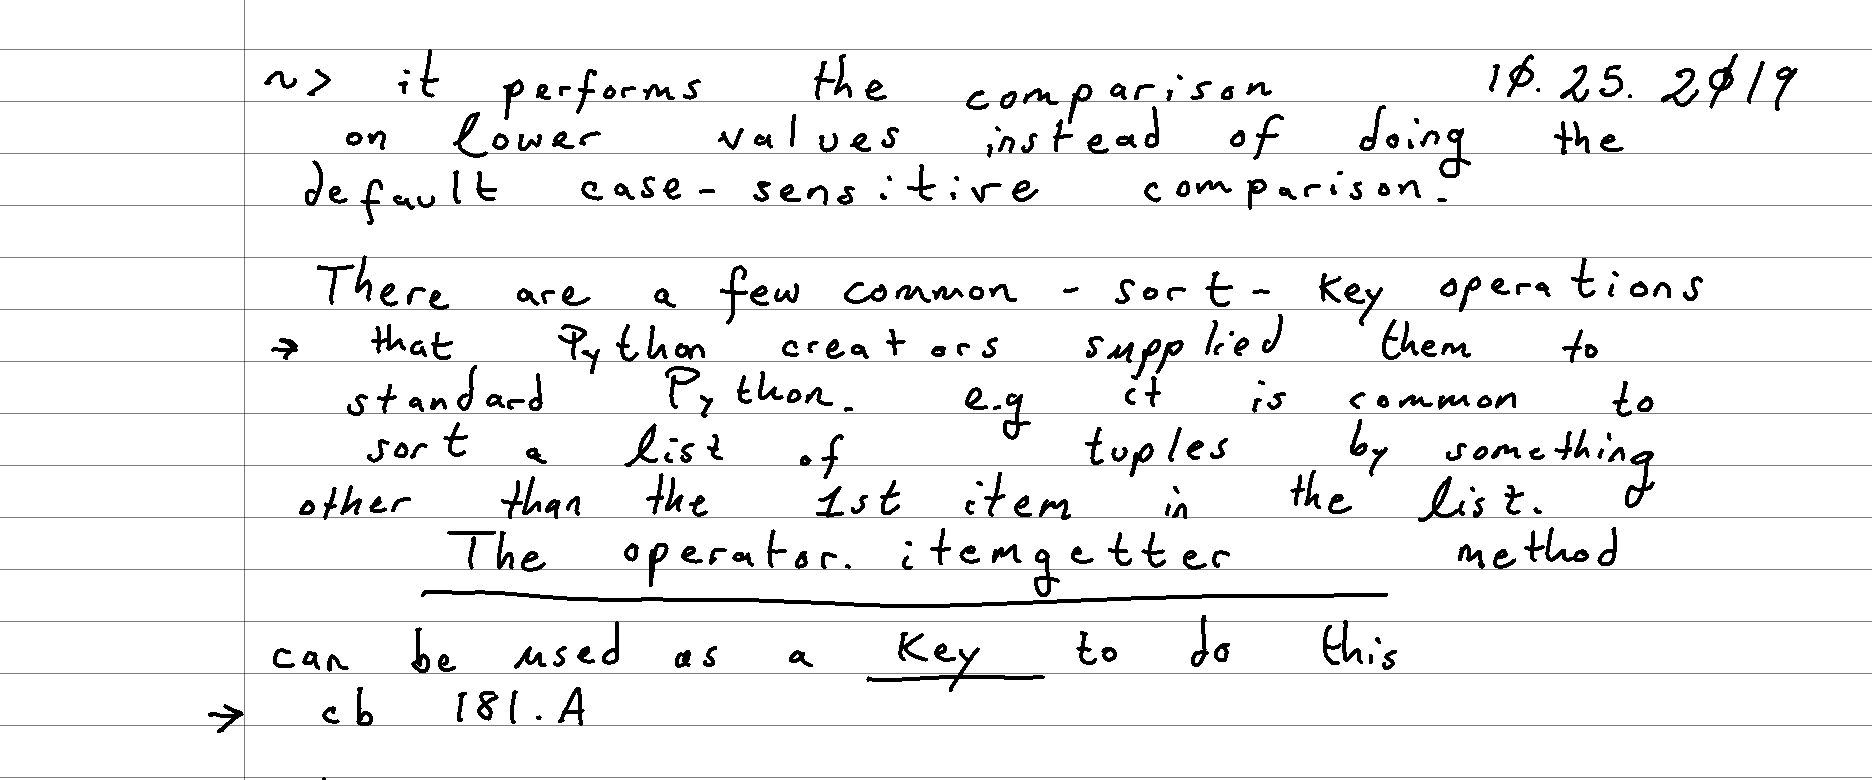 ~> it performs the comparison 10.25.2019
on lower values instead of doing the
default case-sensitive comparison.
There are a few common-sort-key operations
→ that Python creators supplied them to
standard Python. e.g it is common to
sort a list of tuples by something
other than the 1st item in the list.
The operator.itemgetter method
can be used as a key to do this
→ cb 181.A